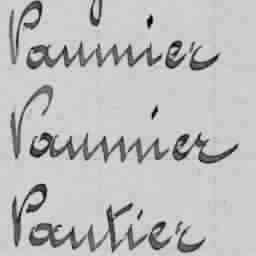 Paumier
Paumier
Pautier